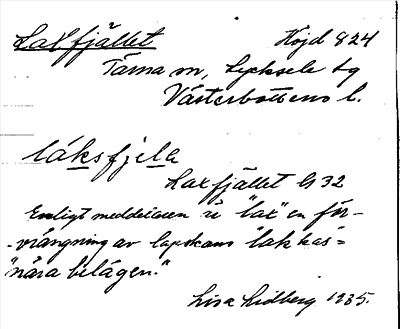 Laxfjället Höjd 824
Tärna sn, Lycksele tg
Västerbottens l.
láksfjela
Laxfjället G 32
Enligt meddelaren är "lax" en för-
-vrängning av lapskans "lakkas" =
"nära belägen."
Lisa Lidberg 1935.